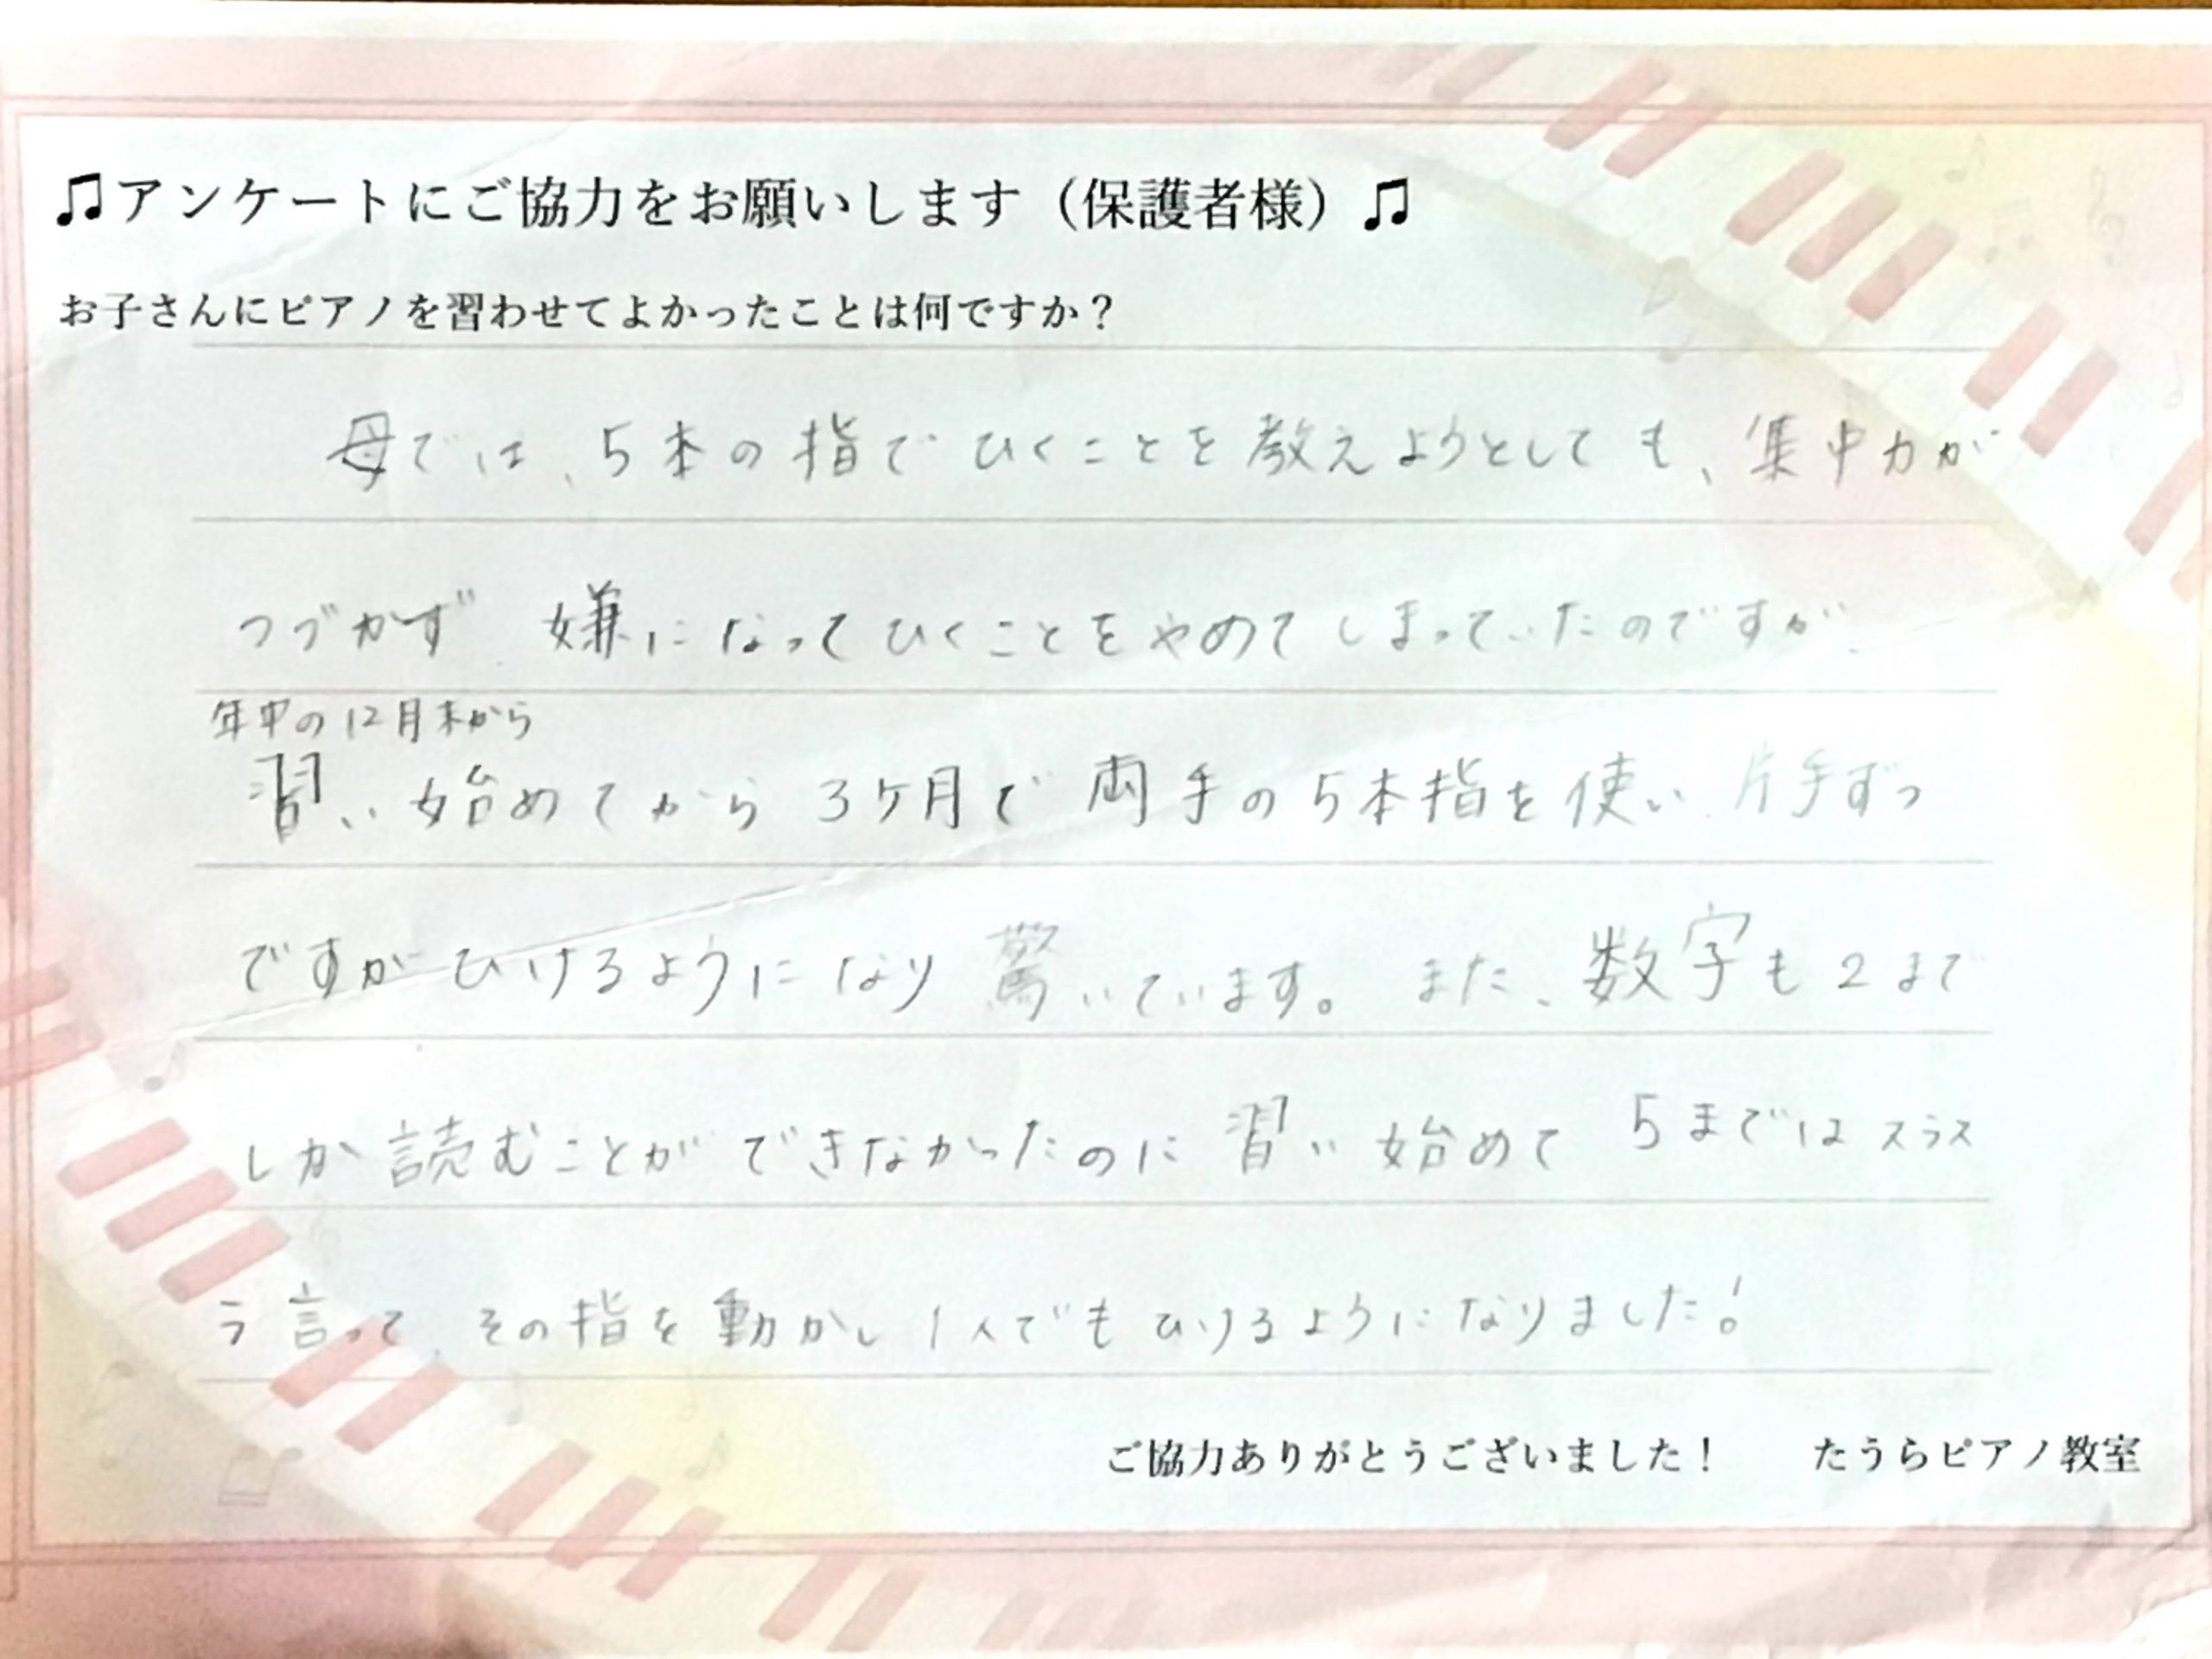 ♫アンケートにご協力をお願いします（保護者様）♫
お子さんにピアノを習わせてよかったことは何ですか？
母では、5本の指でひくことを教えようとしても、集中力が
つづかず、嫌になってひくことをやめてしまっていたのですが、
年中の12月末から
習い始めてから3ヶ月で両手の5本指を使い、片手ずつ
ですがひけるようになり驚いています。また、数字も2まで
しか読むことができなかったのに習い始めて5まではスラス
ラ言って、その指を動かし1人でもひけるようになりました！
ご協力ありがとうございました！　たうらピアノ教室